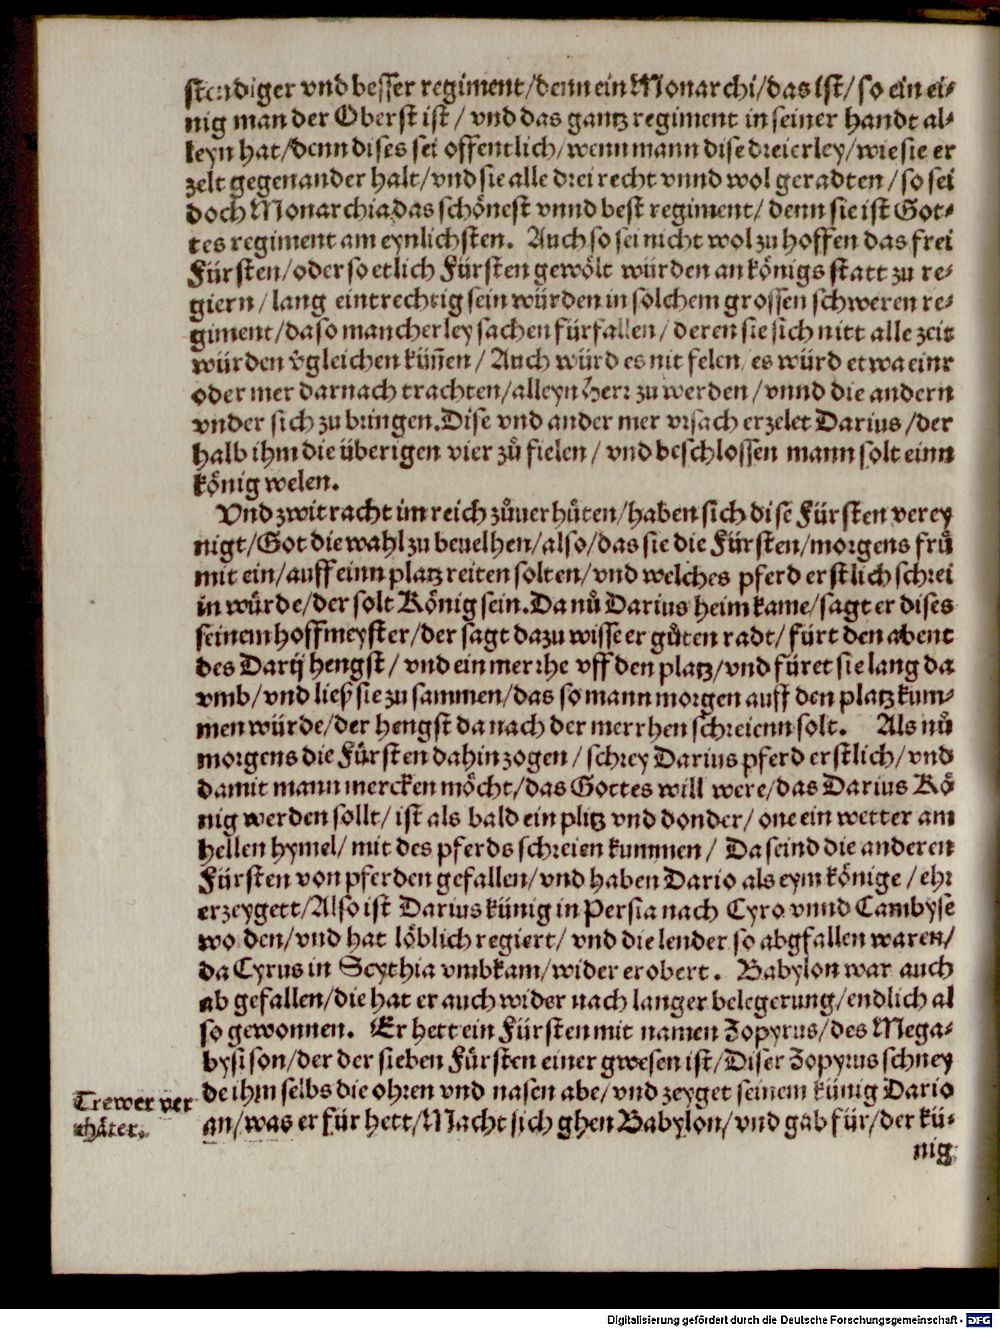 stendiger vnd besser regiment/denn ein Monarchi/das ist/ so ein ei⸗
nig man der Oberst ist/ vnd das gantz regiment in seiner handt al⸗
leyn hat/denn dises sei offentlich/wenn mann dise dreierley/wie sie er
zelt gegenander halt/vnd sie alle drei recht vnnd wol geradten/so sei
doch Monarchia das schönest vnnd best regiment/ denn sie ist Got⸗
tes regiment am eynlichsten. Auch so sei nicht wol zu hoffen das frei
Fürsten/oder so etlich Fürsten gewölt würden an königs statt zu re⸗
giern/lang eintrechtig sein würden in solchem grossen schweren re⸗
giment/da so mancherley sachen fürfallen/ deren sie sich nitt alle zeit
würden v̈gleichen küñen/ Auch würd es nit felen/es würd etwa einr
oder mer darnach trachten/alleyn Herr zu werden/vnnd die andern
vnder sich zu bringen.Dise vnd ander mer vrsach erzelet Darius/der
halb ihm die überigen vier zů fielen/ vnd beschlossen mann solt einn
könig welen.
Vnd zwitracht im reich zůuerhüten/haben sich dise Fürsten verey
nigt/Got die wahl zu beuelhen/also/das sie die Fürsten/morgens frů
mit ein/auff einn platz reiten solten/vnd welches pferd erstlich schrei
in würde/der solt König sein.Da nů Darius heim kame/sagt er dises
seinem hoffmeyster/der sagt dazu wisse er gůten radt/fürt den abent
des Darij hengst/ vnd ein merrhe vff den platz/vnd füret sie lang da
vmb/vnd ließ sie zu sammen/das so mann morgen auff den platz kum⸗
men würde/der hengst da nach der merrhen schreienn solt. Als nů
morgens die Fürsten dahin zogen/ schrey Darius pferd erstlich/vnd
damit mann mercken möcht/das Gottes will were/das Darius Kö
nig werden sollt/ ist als bald ein plitz vnd donder/ one ein wetter am
hellen hymel/ mit des pferds schreien kummen/ Da seind die anderen
Fürsten von pferden gefallen/vnd haben Dario als eym könige/ehr
erzeygett/Also ist Darius künig in Persia nach Cyro vnnd Cambyse
woden/vnd hat löblich regiert/ vnd die lender so abgfallen waren/
da Cyrus in Scythia vmbkam/wider erobert. Babylon war auch
ab gefallen/die hat er auch wider nach langer belegerung/endlich al
so gewonnen. Er hett ein Fürsten mit namen Zopyrus/des Mega⸗
bysi son/der der sieben Fürsten einer gwesen ist/Diser Zopyrus schney
de ihm selbs die ohren vnd nasen abe/vnd zeyget seinem künig Dario
an/was er für hett/Macht sich ghen Babylon/vnd gab für/der kü⸗
nig
Trewer ver
rhäter.
Digitalisierung gefördert durch die Deutsche Forschungsgemeinschaft - DFG